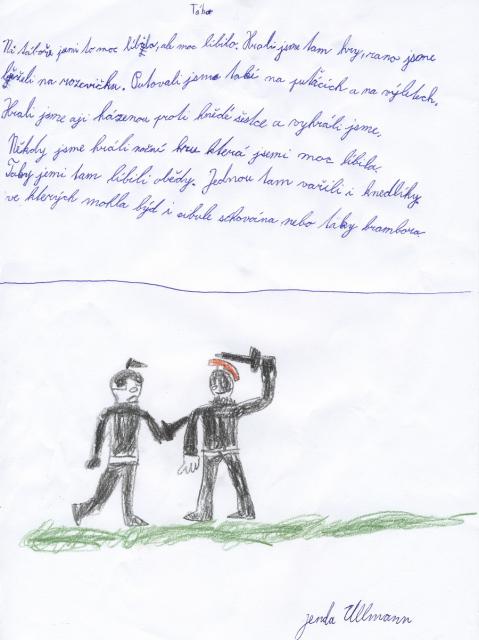 Tábor
Na táboře jsmi to moc líbílo, ale moc líbílo. Hráli jsme tam hry, rano jsme
běželi na rozcvičku. Putovali jsme také na puťácích a na výletech.
Hráli jsme aji házenou proti hnědé šestce a vyhráli jsme.
Někdy jsme hráli noční hru která jsemi moc líbila.
Taky jsmi tam líbili obědy. Jednou tam vařili i knedlíky
ve kterých mohla býd i cibule schovaína nebo táky brambora
jenda Ullmann